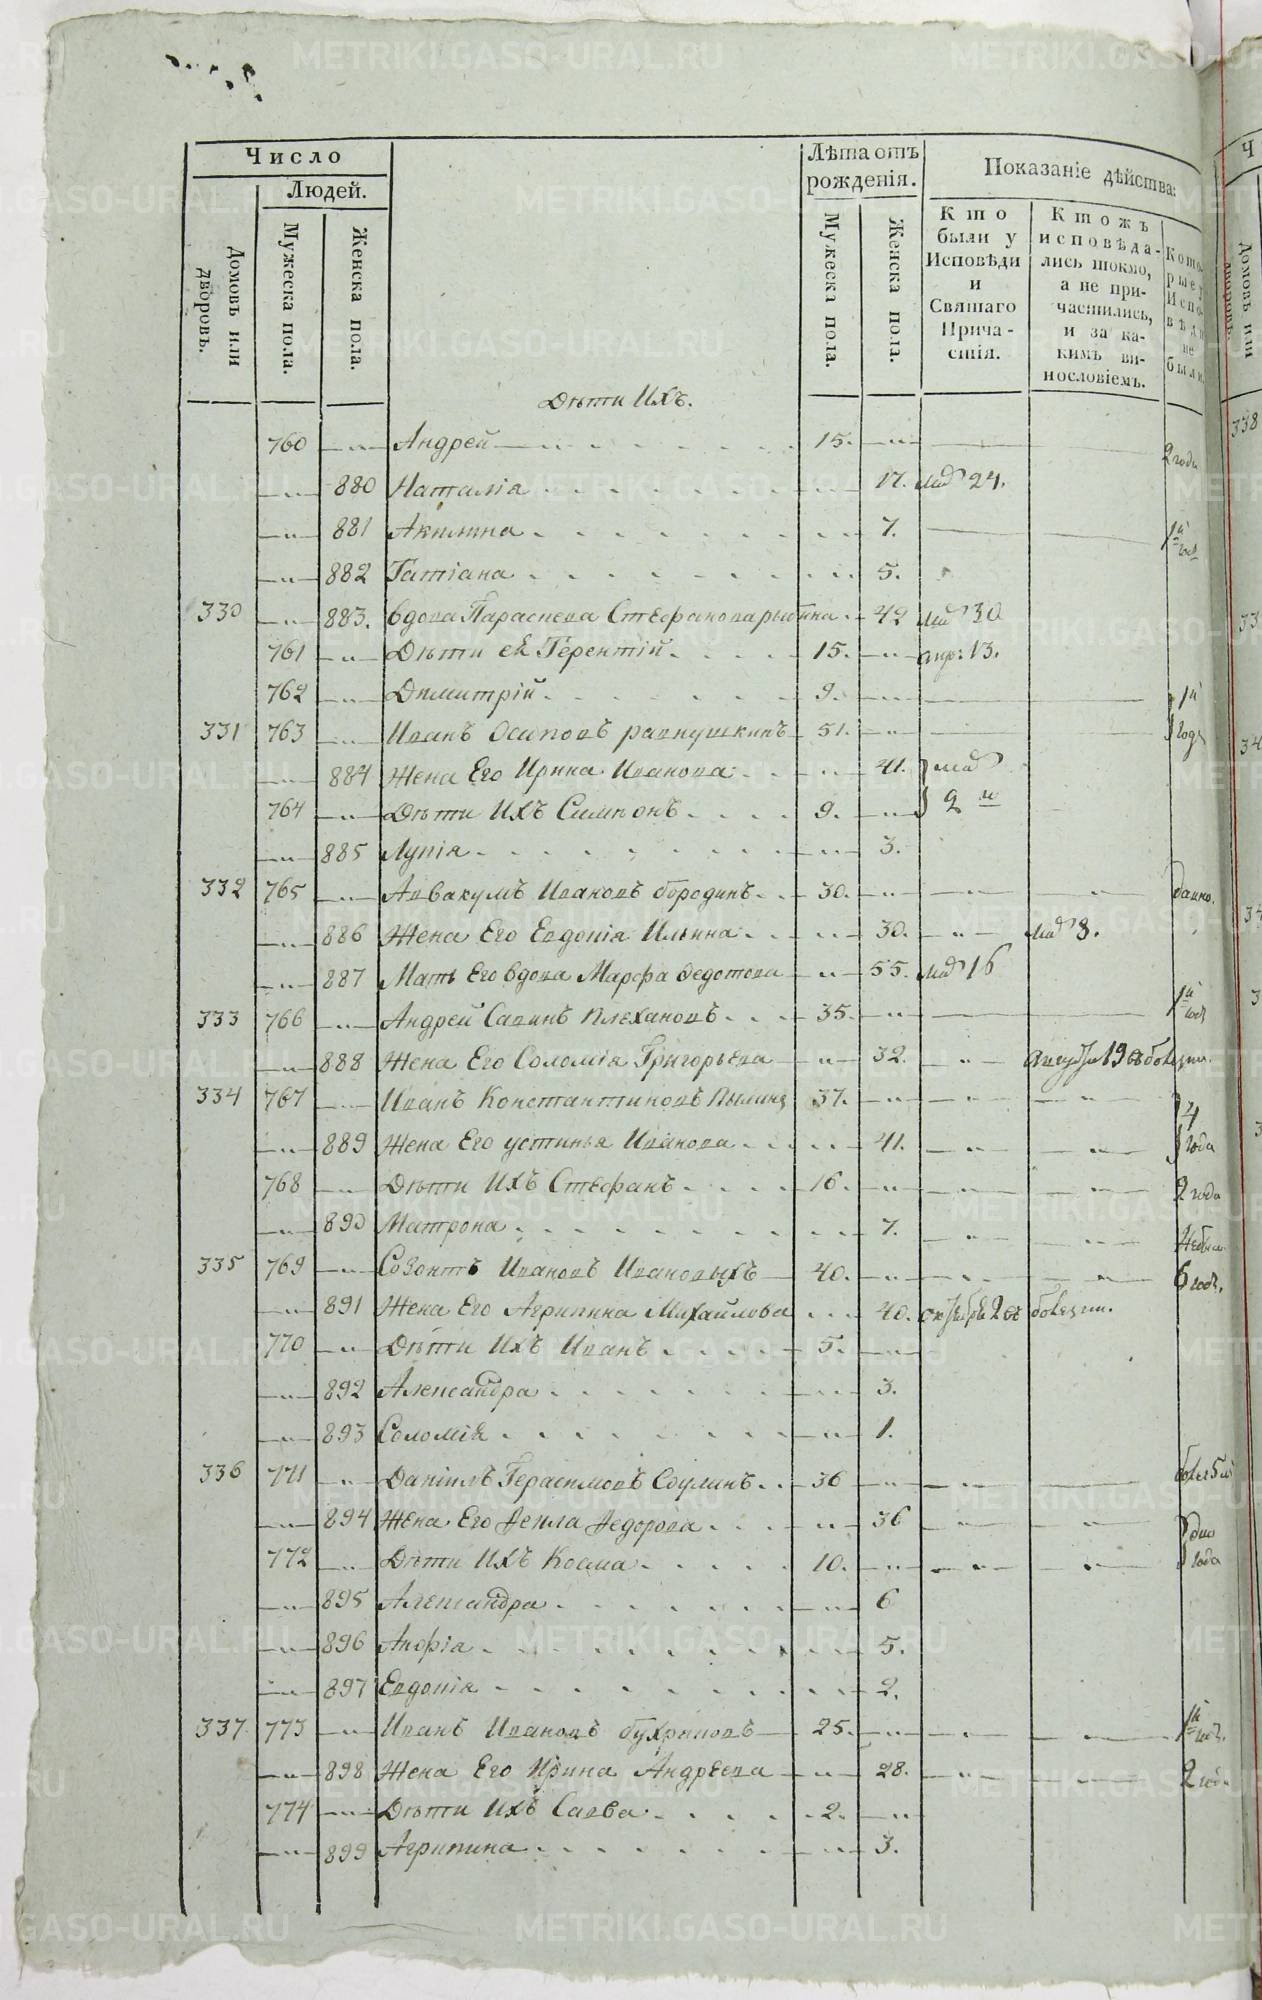 Число
Людей.
Домовъ или дворовъ.
Мужеска пола.
Женска пола.
Лѣта отъ рожденія.
Мужеска пола.
Женска пола.
Показаніе дѣйства:
Кто были у Исповѣди и Святаго Прича-стія.
Ктожъ исповѣда-лись токмо, а не при-частились, и за ка-кимъ ви-нословіемъ.
Кото-рые у Испо-вѣди не были.
Дѣти Ихъ.
760 Андрей 15. 2 года
880 Наталія 17. 24.
881 Акилина 7. 1й годъ
882 Татіана 5.
330 883. вдова Параскева Стефанова рыбина 42 30
761 Дѣти ея Терентій 15. апр: 13.
762 Димитрій 9. 1й
331 763 Иванъ Осиповъ равнушкинъ 51. годъ
884 Жена Его Ирина Иванова 41. маія
764 Дѣти Ихъ Симеонъ 9. 2 го
885 Лукія 3.
332 765 Аввакумъ Ивановъ бородинъ 30. давно.
886 Жена Его Евдокія Ильина 30. 8.
887 Мать Его вдова Марфа Федотова 55. 16
333 766 Андрей Савинъ Плехановъ 35. 1й годъ
888 Жена Его Соломія Григорьева 32. августа 19 въ болезни.
334 767 Иванъ Константиновъ Пылинъ 37. 4
889 Жена Его устинья Иванова 41. года
768 Дѣти Ихъ Стефанъ 16. 2 года
890 Матрона 7.
335 769 Созонтъ Ивановъ Ивановыхъ 40. 6 годъ.
891 Жена Его Агрипина Михайлова 40. октября 2 въ болезни.
770 Дѣти Ихъ Иванъ 5.
892 Александра 3.
893 Соломія 1.
336 771 Даніилъ Герасимовъ Соулинъ 36
894 Жена Его Фекла Федорова 36 два
772 Дѣти Ихъ Косма 10. года
895 Александра 6
896 Анфіа 5.
897 Евдокія 2.
337. 773 Иванъ Ивановъ бухряковъ 25. 1й годъ.
898 Жена Его Ирина Андреева 28. 2 года
774 Дѣти Ихъ Савва 2.
899 Агрипина 3.
338
METRIKI.GASO-URAL.RU